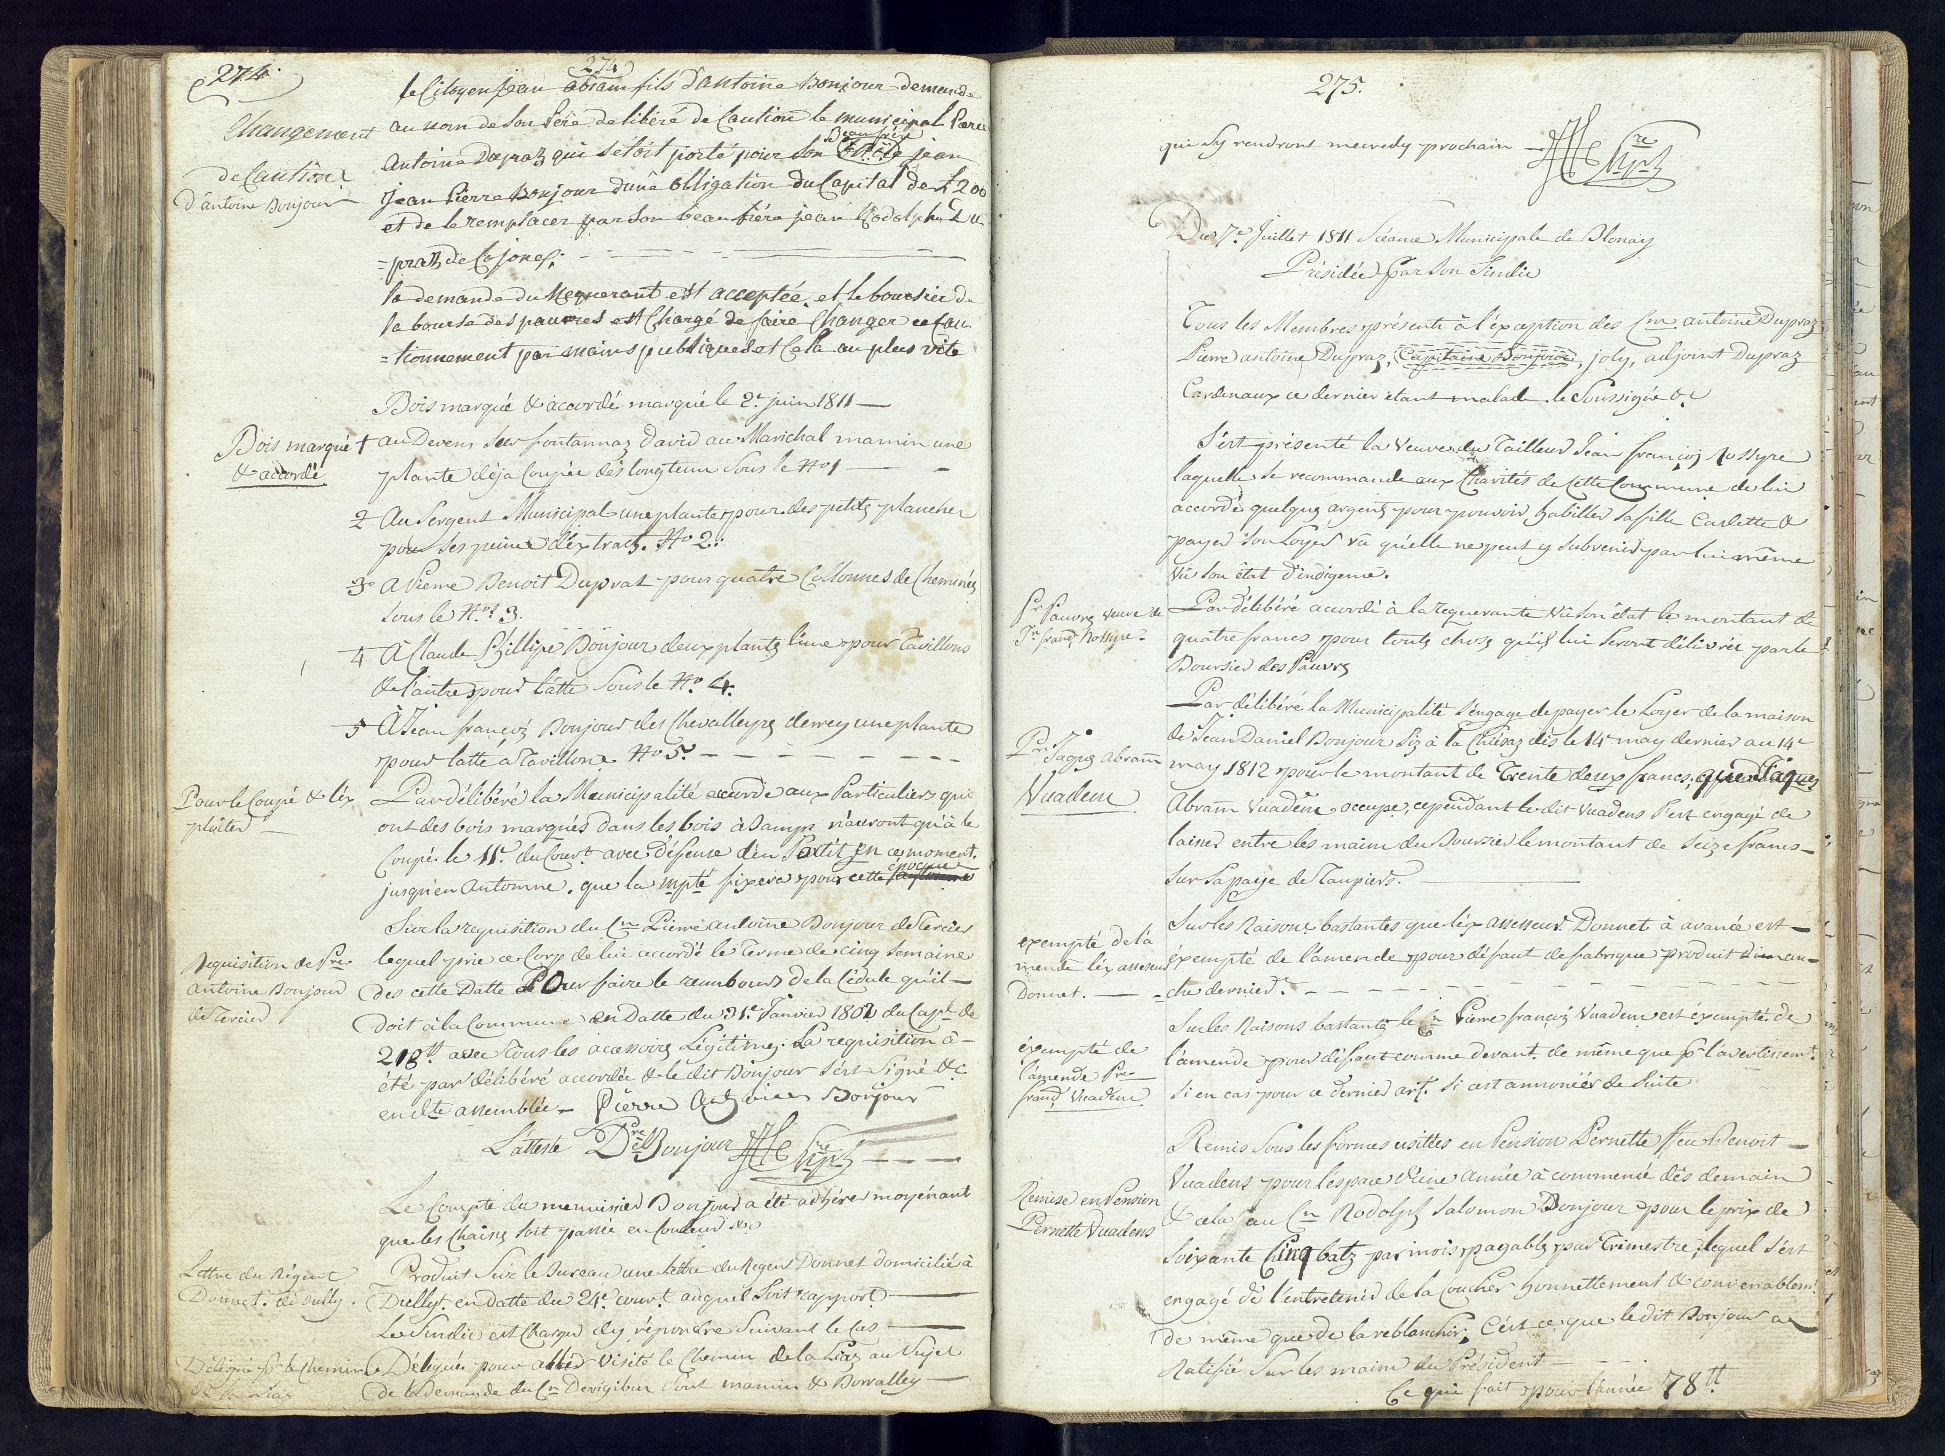 274.
274
Changement
de Caution
d'antoine Bonjour
le Citoyen jean abram fils d'Antoine Bonjour demande
au nom de son Pére de libéré de Caution le municipal Pierre
Antoine Dupraz qui sétoit porté pour son Beaufrére jean
jean Pierre Bonjour dune obligation du Capital de £ 200
et de le remplacer par son beau frére jean Rodolph Du
=praz de Cojonex;
la demande du Requerant est acceptée, et le boursier de
la bourse des pauvres est Chargé de faire Changer ce Cau
=tionnement par mains publiques et Cela au plus vite
Bois marqué & accordé marqué le 2e juin 1811
Bois marqué
& accordé
1 au Devens sur fontannaz david au Marichal mamin une
plante déja Coupée dès longtems sous le No 1
2 Au Sergent Municipal une plante pour des petits plancher
pour ses peines d'extraits. No 2.
3o a Pierre Benoit Duprat pour quatre Collonnes de Cheminée
sous le No 3.
4 A Claude Phillipe Bonjour deux plantes l'une pour Tavillons
& l'autre pour latte sous le No. 4.
5 À Jean françois Bonjour des Chevalleyres derrey une plante
pour latte à Tavillons No 5.
Pour le Coupé & l'ex
ploiter
Par délibéré la Municipalité accorde aux Particuliers qui
ont des bois marqués dans les bois à Damps n'auront qu'à le
Coupé le 11e. du Cour.t avec défense d'en Sortir en ce moment.
jusqu'en Automne. que la mpté fixera pour cette époque
Requisition de Pre
antoine Bonjour
de Tercier
Sur la requisition du Cn Pierre antoine Bonjour de Tercier
lequel prie ce Corp de lui accordé le Terme de cinq semaine
des cette Datte Pour faire le rembours de la Cédule qu'il
doit à la Commune en Datte du 31e. Janvier 1802 du Capl de
218 tt avec Tous les acessoires Légitimes. La requisition à
été par délibéré accordée & le dit Bonjour s'est Signé &c
en dte assemblée Pierre Antoine Bonjour
L'atteste Dre Bonjour
Le Compte du menuisier Bonjour a été adhéré moyénant
que les Chaises soit passée en Couleur &c
Lettre du Régent
Donnet. de Dully.
Produit Sur le Bureau une lettre du Regent Donnet domicilié à
Dully. en datte du 24e. cour.t auquel soit rapport
Le Sindic est Chargé d'y répondre Suivant le Cas
Délégué pr le Chemin
de la Liaz
Délégués pour allér visité le Chemin de la Liaz au Sujet
de la demande du Cn Dévigibus sont mamin & Borralley
275.
qui s'y rendront mecredy prochain
Du 7e. Juillet 1811 Séance Municipale de Blonay
Présidée par Son Sindic
Tous les Membres présents à l'éxception des Cns. antoine Dupraz
Pierre antoine Dupraz, Capitaine Bonjour, joly, adjoint Dupraz
Cardenaux ce dernier étant malad. le Soussigné &c
S'est présenté la Veuve du Tailleur Jean françois Rossyre
laquelle se recommande aux Charités de Cette Commune de lui
accordé quelques argents pour pouvoir habiller sa fille Carlette &
payer son Loyer vû qu'elle ne peut y subvenir par lui même
Vû son état d'indigence.
Pr Pauvre veuve de
Jn franç Rossyre
Par délibéré accordé à la requerante vû son état le montant de
quatre francs pour toute chose qu'ils lui seront délivrée par le
Boursier des Pauvres
Pr. Jaques abram
Vuadens
Par délibéré la Municipalité s'engage de payer le Loyer de la maison
de Jean Daniel Bonjour Siz à la Chiésaz dès le 14e may dernier au 14e
may 1812 pour le montant de Trente deux francs, que Jaques
Abram Vuadens occupe, cependant le dit Vuadens s'est engagé de
laisser entre les mains du Boursier le montant de Seize francs
sur sa paye de Taupier.
exempté de la
mende l'ex assesseur
Donnet.
Sur les Raisons bastantes que l'éx assesseur Donnet à avancé est
éxempté de l'amende pour défaut de fabrique produit diman
=che dernier.
éxempté de
l'amende Pre
franç Vuadens
Sur les Raisons bastante le Cn Pierre françois Vuadens est éxempté de
l'amende pour défaut comme devant. de même que pr l'avertissemt.
si en cas pour ce dernier art. si est annoncéer de Suite.
Remise en Pension
Pernette Vuadens
Remis Sous les formes usitées en Pension Pernette ffeu Benoit
Vuadens pour lespace d'une année à commencé dès demain
& cela au Cn Rodolph Salomon Bonjour pour le prix de
soixante Cinq batz par mois payable par Trimestre, lequel s'est
engagé de l'entretenir de la Coucher honnettement & convenablemt
de même que de la reblanchir. C'est ce que le dit Bonjour a
Ratifié Sur les mains du Président
Ce qui fait pour l'année 78 tt